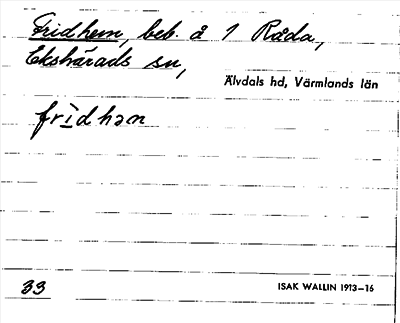 Fridhem, beb. å 1 Råda,
Ekshärads sn,
Älvdals hd, Värmlands län
frìdhəm
33
ISAK WALLIN 1913–16